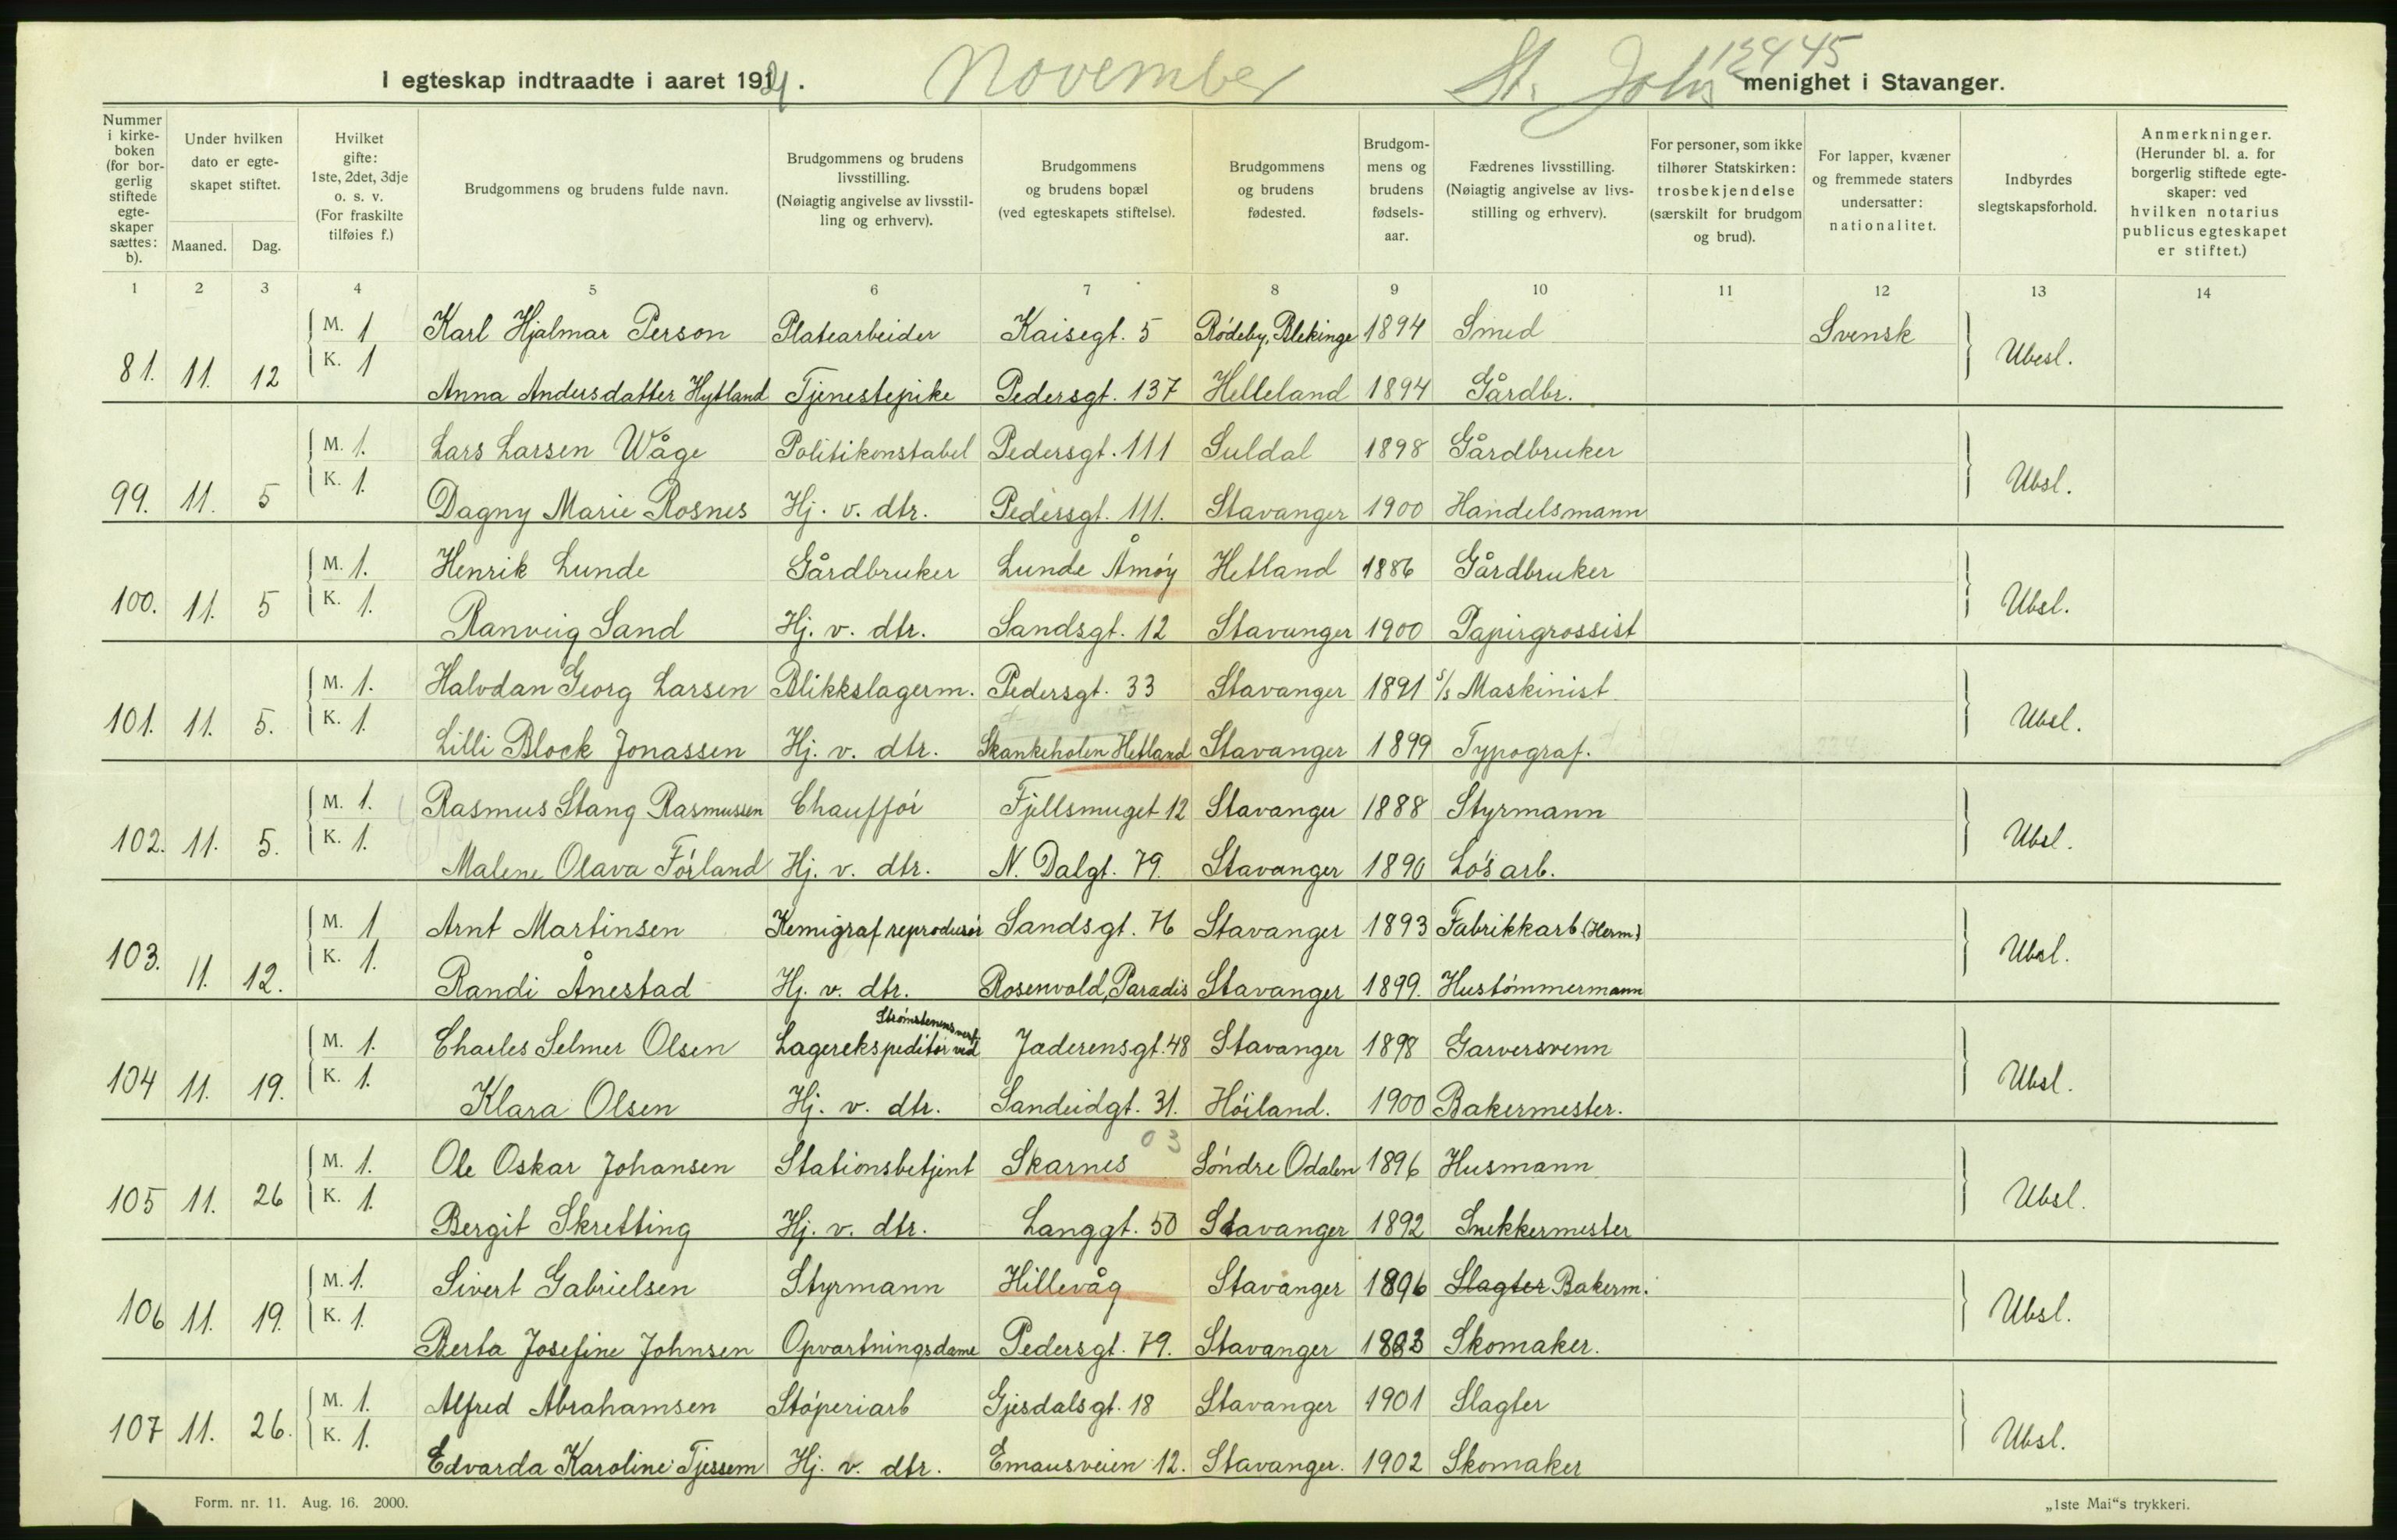 12445
I egteskap indtraadte i aaret 1921. November St. Johs menighet i Stavanger.
Nummer i kirkeboken (for borgerlig stiftede egteskaper sættes: b). | Under hvilken dato er egteskapet stiftet. Maaned. Dag. | Hvilket gifte: 1ste, 2det, 3dje o. s. v. (For fraskilte tilføies f.) | Brudgommens og brudens fulde navn. | Brudgommens og brudens livsstilling. (Nøiagtig angivelse av livsstilling og erhverv). | Brudgommens og brudens bopæl (ved egteskapets stiftelse). | Brudgommens og brudens fødested. | Brudgommens og brudens fødselsaar. | Fædrenes livsstilling. (Nøiagtig angivelse av livsstilling og erhverv). | For personer, som ikke tilhører Statskirken: trosbekjendelse (særskilt for brudgom og brud). | For lapper, kvæner og fremmede staters undersatter: nationalitet. | Indbyrdes slegtskapsforhold. | Anmerkninger. (Herunder bl. a. for borgerlig stiftede egteskaper: ved hvilken notarius publicus egteskapet er stiftet.)
1 2 3 4 5 6 7 8 9 10 11 12 13 14
M. 1 Karl Hjalmar Person Platearbeider Kaisegt. 5 Rødeby, Blekinge 1894 Smed Svensk
81. 11. 12 K. 1 Anna Andersdatter Hytland Tjenestepike Pedersgt. 137 Helleland 1894 Gårdbr. Ubesl.
M. 1. Lars Larsen Wåge Politikonstabel Pedersgt. 111 Suldal 1898 Gårdbruker
99. 11. 5 K. 1. Dagny Marie Rosnes Hj. v. dtr. Pedersgt. 111. Stavanger 1900 Handelsmann Ubsl.
M. 1. Henrik Lunde Gårdbruker Lunde Åmøy Hetland 1886 Gårdbruker
100. 11. 5 K. 1. Ranveig Sand Hj. v. dtr. Sandsgt. 12 Stavanger 1900 Papirgrossist Ubsl.
M. 1. Halvdan Georg Larsen Blikkslagerm. Pedersgt. 33 Stavanger 1891 S/s Maskinist
101. 11. 5. K. 1. Lilli Block Jonassen Hj. v. dtr. Skankeholen Hetland Stavanger 1899 Typograf. Ubsl.
M. 1. Rasmus Stang Rasmussen Chauffør Fjellsmuget 12 Stavanger 1888 Styrmann
102. 11. 5. K. 1. Malene Olava Førland Hj. v. dtr. N. Dalgt. 79. Stavanger 1890 Løsarb. Ubsl.
M. 1 Arnt Martinsen Kemigraf reprodusør Sandsgt. 76 Stavanger 1893 Fabrikkarb (Herm)
103. 11. 12. K. 1. Randi Ånestad Hj. v. dtr. Rosenvold, Paradis Stavanger 1899. Hustømmermann Ubsl.
M. 1. Charles Selmer Olsen Lagerekspeditør ved Strømstenensverk Jaderensgt. 48 Stavanger 1898 Garversvenn
104 11. 19. K. 1. Klara Olsen Hj. v. dtr. Sandeidgt. 31. Høiland. 1900 Bakermester. Ubsl.
03
M. 1. Ole Oskar Johansen Stationsbetjent Skarnes Søndre Odalen 1896 Husmann
105 11. 26 K. 1. Bergit Skretting Hj. v. dtr. Langgt. 50 Stavanger 1892 Snekkermester Ubsl.
M. 1. Sivert Gabrielsen Styrmann Hillevåg Stavanger 1896 Slagter Bakerm.
106 11. 19. K. 1. Berta Josefine Johnsen Opvartningsdame Pedersgt. 79. Stavanger 1883 Skomaker. Ubsl.
M. 1. Alfred Abrahamsen Støperiarb Gjesdalsgt. 18 Stavanger 1901 Slagter
107 11. 26. K. 1. Edvarda Karoline Tjessem Hj. v. dtr. Emausveien 12. Stavanger. 1902 Skomaker Ubsl.
Form. nr. 11. Aug. 16. 2000. „1ste Mai“s trykkeri.